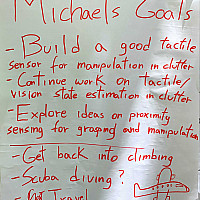 Michaels Goals
- Build a good tactile
sensor for manipulation in clutter
- Continue work on tactile/
vision state estimation in clutter
- Explore ideas on proximity
sensing for grasping and manipulation
- Get back into climbing
- Scuba diving?
Travel